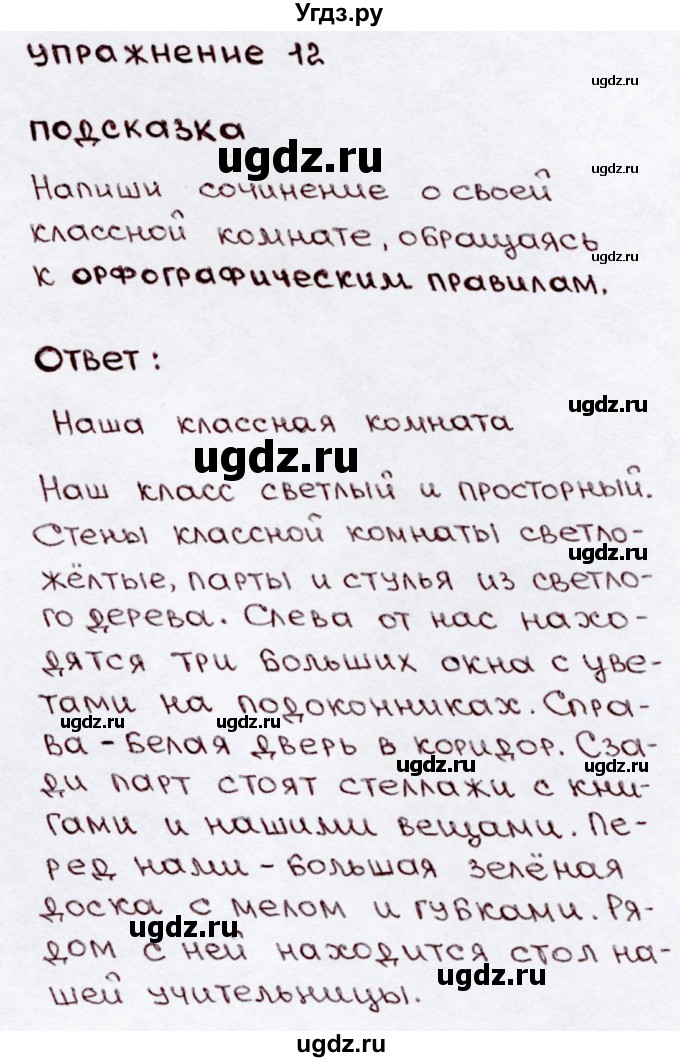 Угдз.ру
упражнение 12
ugdz.ru
подсказка
ugdz.ru
ugdz.ru
Напиши сочинение о своей
классной комнате, обращаясь
ugdz.ru
к орфографическим правилам.
Ответ:
ugdz.ru
Наша классная комната
ugdz.ru
Наш класс светлый и просторный.
Стены классной комнаты светло-
ugdz.ru
жёлтые, парты и стулья из светло-
го дерева. Слева от нас нахо-
дятся три больших окна с цве-
тами на подоконниках. Спра-
ugdz.ru ugdz.ru
ва - белая дверь в коридор. Сза-
ugdz.ru ugdz.ru
ди парт стоят стеллажи с кни-
гами и нашими вещами. Пе-
ред нами - большая зелёная
доска с мелом и губками. Ря-
ugdz.ru
дом с ней находится стол на-
ugdz.ru
шей учительницы.
ugdz.ru